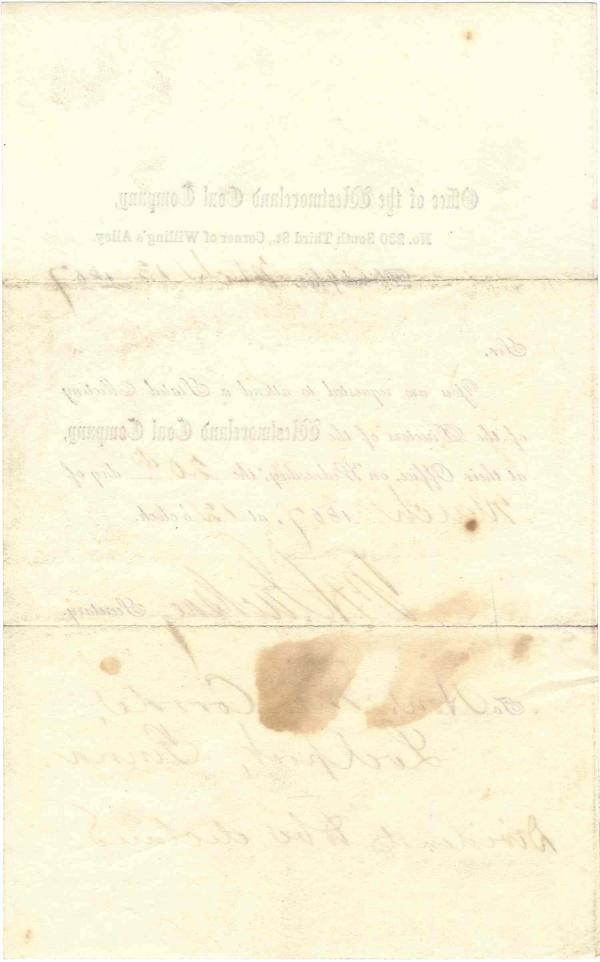 Office of the Westmoreland Coal Company,
No. 230 South Third St., Corner of Willing's Alley.
Philad'a, March 13 1867
Sir,
You are requested to attend a Stated Meeting
of the Directors of the Westmoreland Coal Company,
at their Office, on Wednesday, the 20th day of
March 1867, at 12 o'clock.
Secretary.
To
Lockport, Penna.
Dividend to be declared